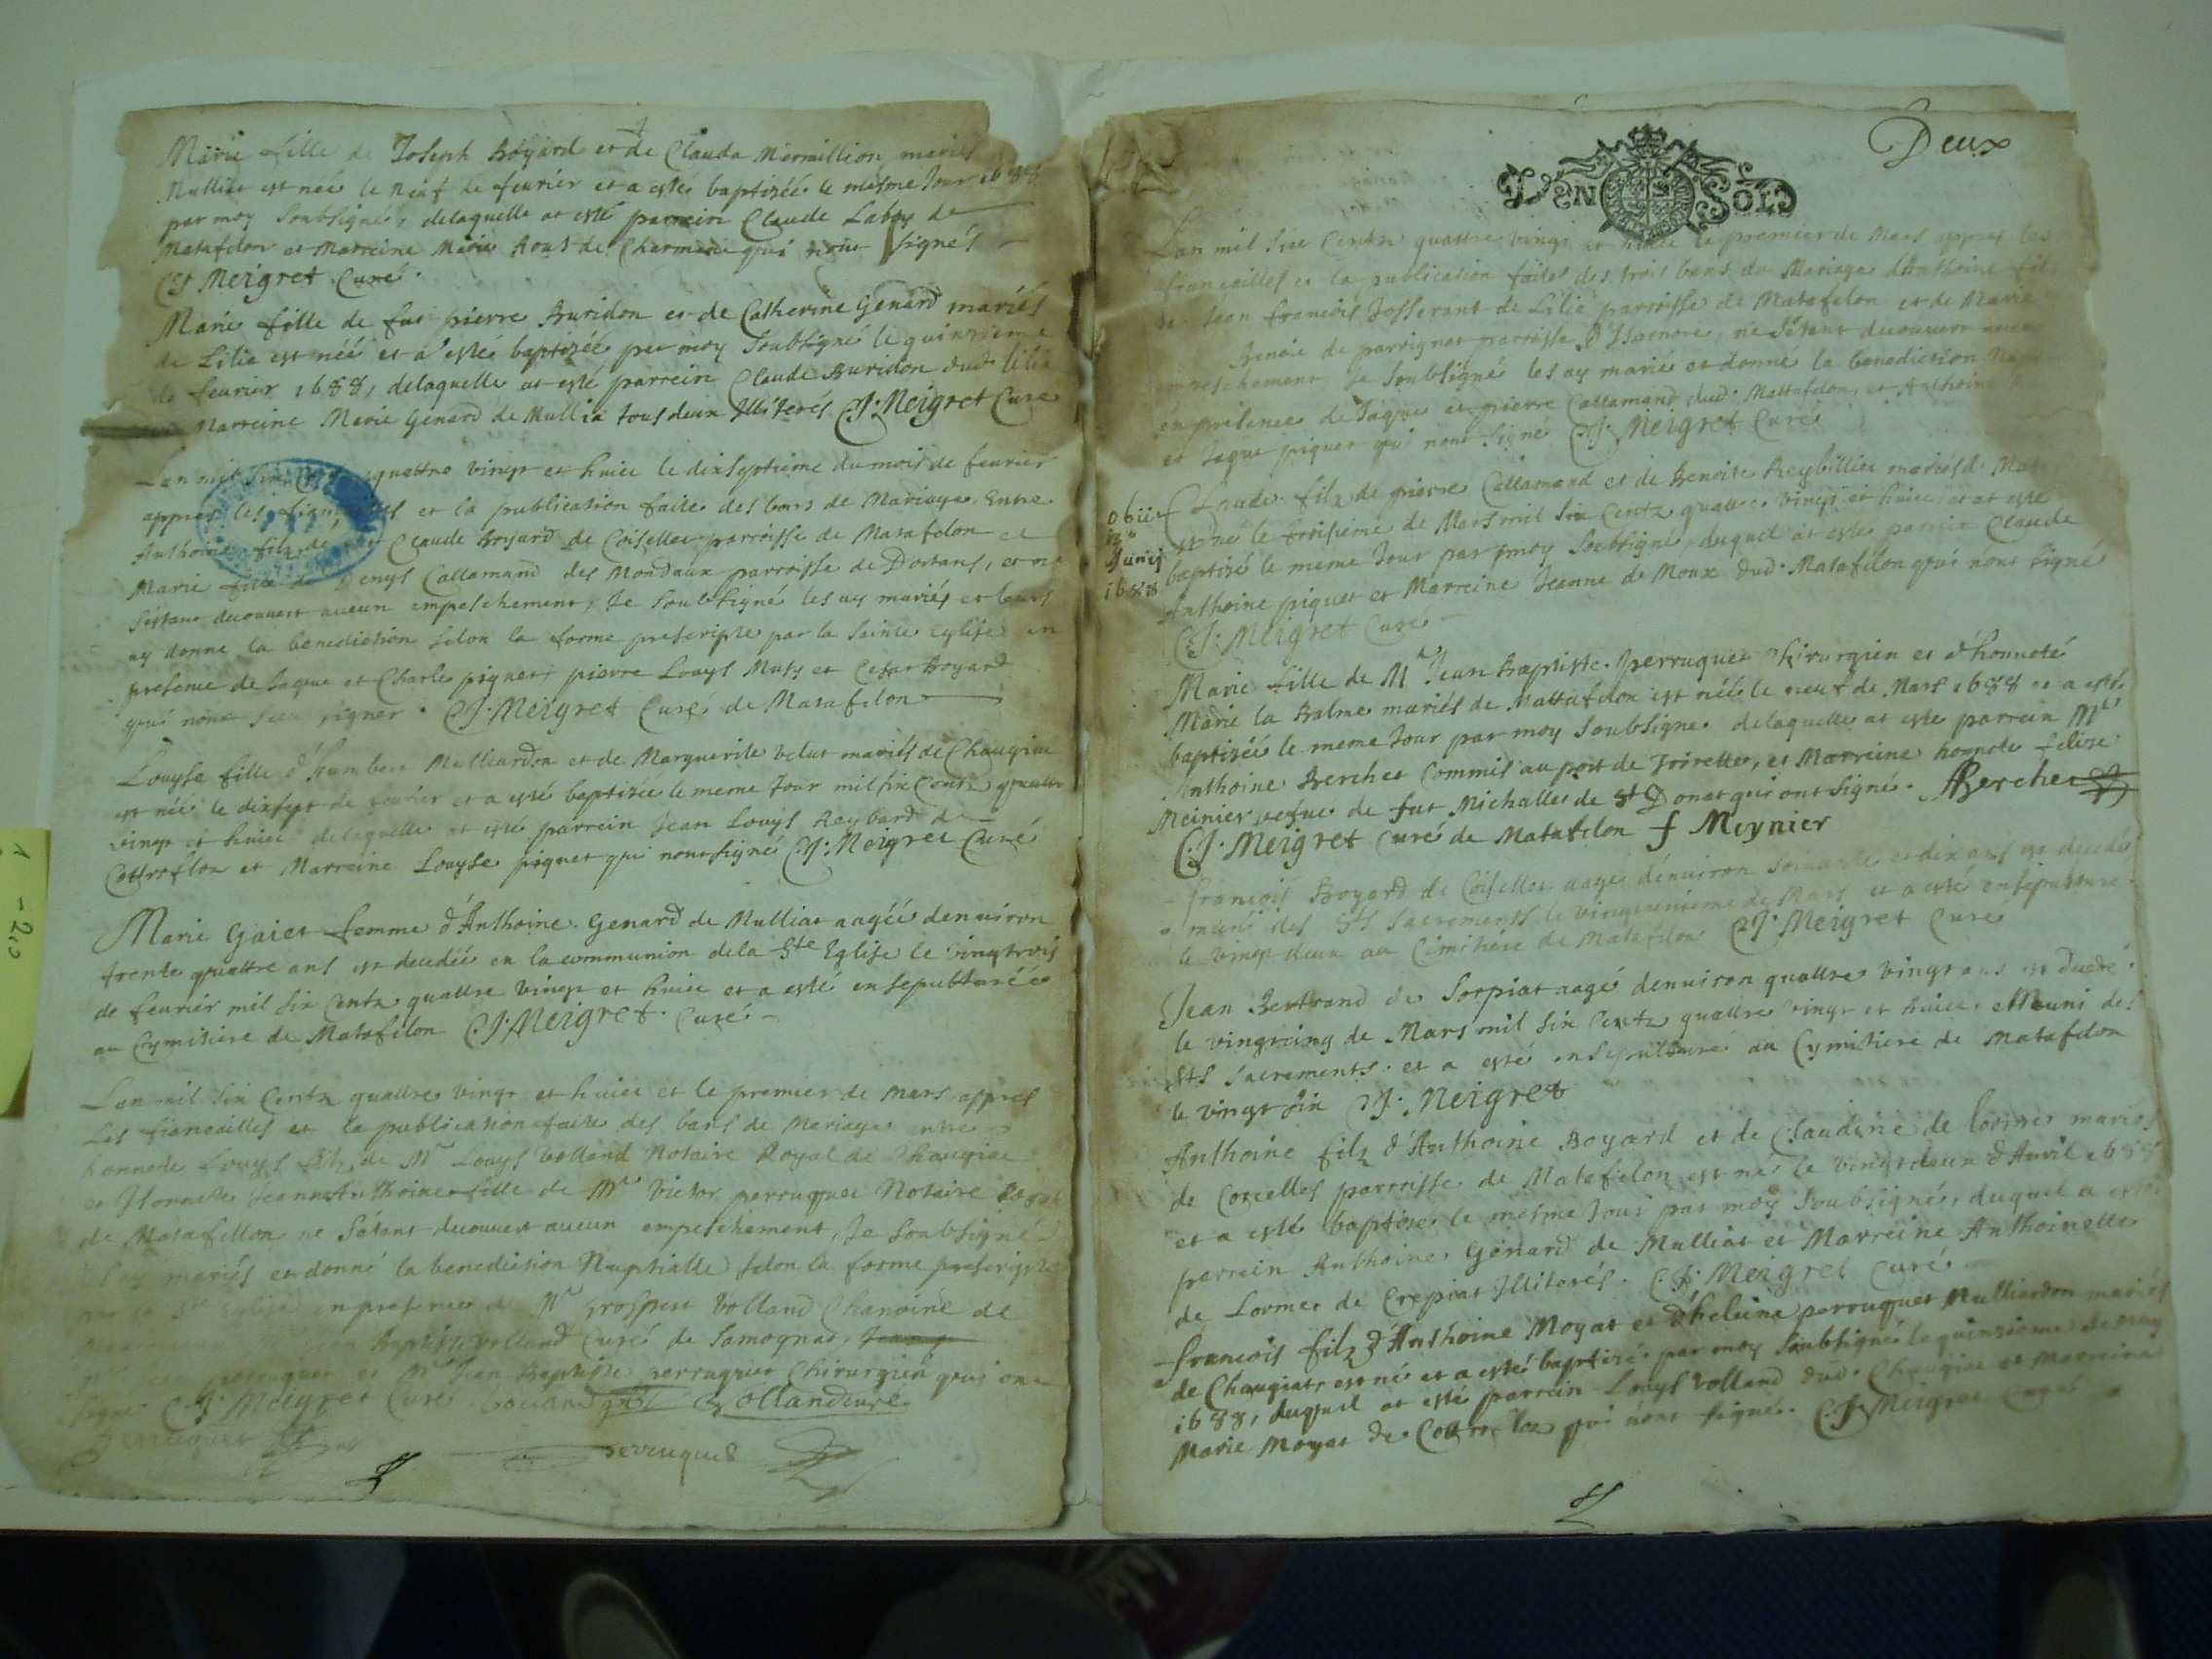 Marie fille de Joseph Boyard et de Clauda Mermillion mariés
Mulliat est née le neuf de feurier et a esté baptizée le mesme Jour 1688
par moy soubsigné, delaquelle at esté parrein Claude Laboy de
Matafelon et Marreine Marie Roux de Charmine qui signés
CJ Meigret Curé.
Marie fille de fut pierre Buridon et de Catherine Genard mariés
de Lilia est néé et a esté baptizéé par moy soubsigné le quinzieme
de feurier 1688, delaquelle at esté parrein Claude Buridon dud lilia
Marreine Marie Genard de Mullia tous deux Illiterés CJ. Meigret Cure
Lan mil six quattre vingt et huict le dixseptieme du mois de feurier
appres les et la publication faite des bans de Mariage Entre
Anthoine filz de Claude Boyard de Coiselles parroisse de Matafelon et
Marie fille de Denys Callamand des Mondaux parroisse de Dortans, et ne
sestant decouuert aucun empeschement, Je soubsigné les ay mariés et leurs
ay donné la benediction selon la forme prescripte par la sainte Eglise en
presence de Jaque et Charle piquet, pierre Louys Muty et Cesar Boyard
qui nont sceu signer. CJ. Meigret Curé de Matafelon
Louyse fille d'humbert Mulliardon et de Marguerite velut mariés de Chaugiat
est née le dixsept de feurier et a esté baptizée le meme Jour mil six Centz quattre
vingt et huict delaquelle at esté parrein Jean Louys Reybard de
Cottrofloz et Marreine Louyse piquet qui nont signé CJ. Meigret Curé
Marie Gaiet femme d'Anthoine Genard de Mulliat aagéé denuiron
trente quattre ans est decedéé en la communion de la Ste Eglise le vingtrois
de feurier mil six Centz quattre vingt et huict et a esté ensepulturéé
au Cymitiere de Matafelon CJ. Meigret. Curé.
Lan mil six Centz quattre vingt et huict et le premier de mars appres
Les fiancailles et la publication faite des bans de Mariage entre
honneste Louys filz de Mre Louys Volland Notaire Royal de Chaugiat
et Honneste Jeanne Anthoine fille de Mre Victor perruquet Notaire Royal
de Matafellon ne s'étant decouuert aucun empeschement, Je soubsigné
mariés et donné la benediction Nuptialle selon la forme prescripte
par la Ste Eglise en presence de Mre prosper Volland Chanoine de
Baptiste volland Curé de Samognat,
perruquet et Mre Jean Baptiste perruquet Chirurgien qui ont
signé CJ. Meigret Curé Volland Vollandcuré
perruquet
perruquet
Deux
DEVX SOLS
Lan mil six Centz quattre vingt et huict le premier de Mars appres les
fiancailles et la publication faites des trois bans du Mariage d'Anthoine fil
de Jean francois Josserant de Lilia parroisse de Matafelon et de Marie
Benoie de parrignat parroisse D'Isernore, ne s'étant decouuert aucun
empeschement Je soubsigné les ay mariés et donné la benediction
en presence de Jaque et pierre Callamand dud. Mattafelon, et Anthoine
et Jaque piquet qui nont signé CJ. Meigret Curé
obiit
13a
Junij
1688
Claude filz de pierre Callamand et de Benoite Reybillier mariés de
est né le troisieme de Mars mil six Centz quattre vingt et huict et at esté
baptizé le meme Jour par moy soubsigné, duquel at esté parrein Claude
Anthoine piquet et Marreine Jeanne de Moux dud. Matafelon qui nont signé
CJ. Meigret Curé
Marie fille de Mre Jean Baptiste perruquet Chirurgien et d'honneté
Marie la Balme mariés de Mattafelon est néé le neuf de Mars 1688 et a esté
baptizéé le meme Jour par moy soubsigné delaquelle at esté parrein Mre
Anthoine Berchet Commis au port de Joirette, et Marreine honnete felize
Meinier vefue de fut Michalles de St Donat qui ont signé. ABerchet
CJ. Meigret Curé de Matafelon f Meynier
francois Boyard de Coiselles aagé dénuiron soixante et dix ans est decedé
muni des Sts Sacrements le vingtunieme de Mars et a esté ensepulturé
le vingt deux au Cimitiére de Matafelon CJ. Meigret Curé
Jean Bertrand de Sorpiat aagé denuiron quattre vingt ans est decedé
le vingtcinq de Mars mil six Centz quattre vingt et huict, et Muni des
Sts Sacrements. et a esté ensepulturé au Cymitiere de Matafelon
le vingt six CJ. Meigret
Anthoine filz d'Anthoine Boyard et de Claudine de lormes mariés
de Corcelles parroisse de Matafelon est né le vingtdeux d'Auril 1688
et a esté baptizé le mesme Jour par moy soubsigné, duquel a esté
parrein Anthoine Génard de Mulliat et Marreine Anthoinette
de Lormes de Crepiat Illiterés. CJ. Meigret Curé
francois filz d'Anthoine Moyat et d'heleine perruquet Mulliardon mariés
de Chaugiat, est né et a esté baptizé par moy soubsigné le quinzieme de May
1688, duquel at esté parrein Louys Volland dud. Chaugiat et Marreine
Marie Moyat de Cottrofloz qui nont signé. CJ. Meigret Curé